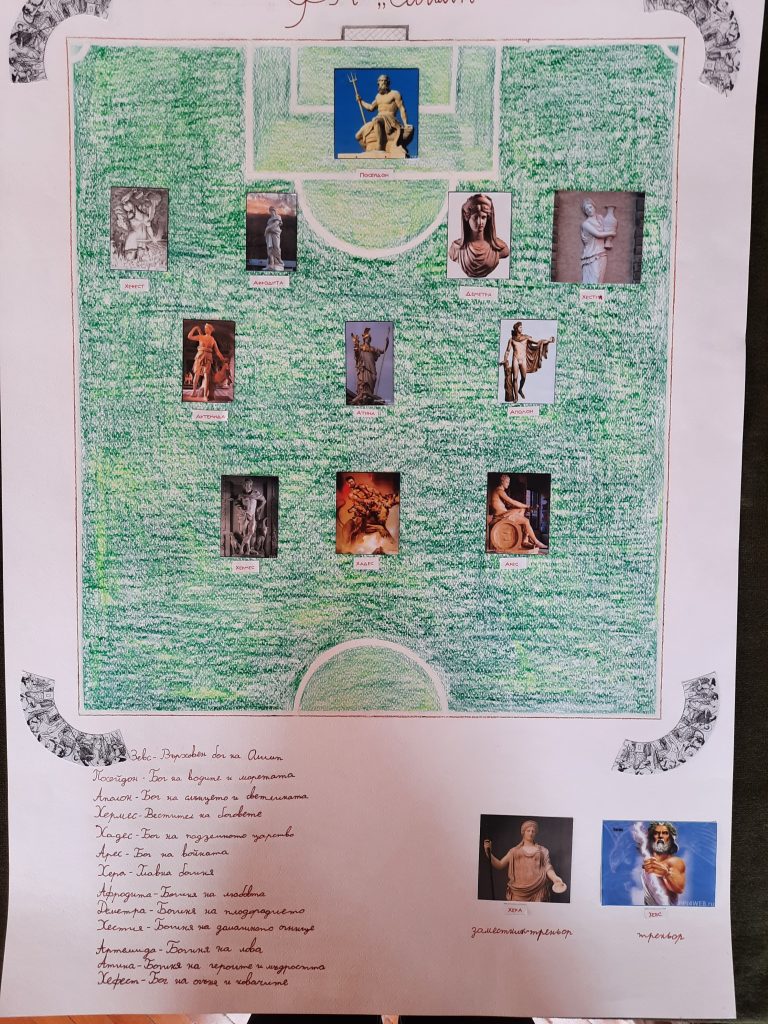 ФК „Олимп"
Посейдон
Хефест
Афродита
Деметра
Хестия
Артемида
Атина
Аполон
Хермес
Хадес
Арес
Зевс - Върховен бог на Олимп
Посейдон - Бог на водите и моретата
Аполон - Бог на слънцето и светлината
Хермес - Вестител на боговете
Хадес - Бог на подземното царство
Арес - Бог на войната
Хера - Главна богиня
Афродита - Богиня на любовта
Деметра - Богиня на плодородието
Хестия - Богиня на домашното огнище
Артемида - Богиня на лова
Атина - Богиня на героите и мъдростта
Хефест - Бог на огъня и ковачите
Хера
заместник-треньор
Зевс
треньор